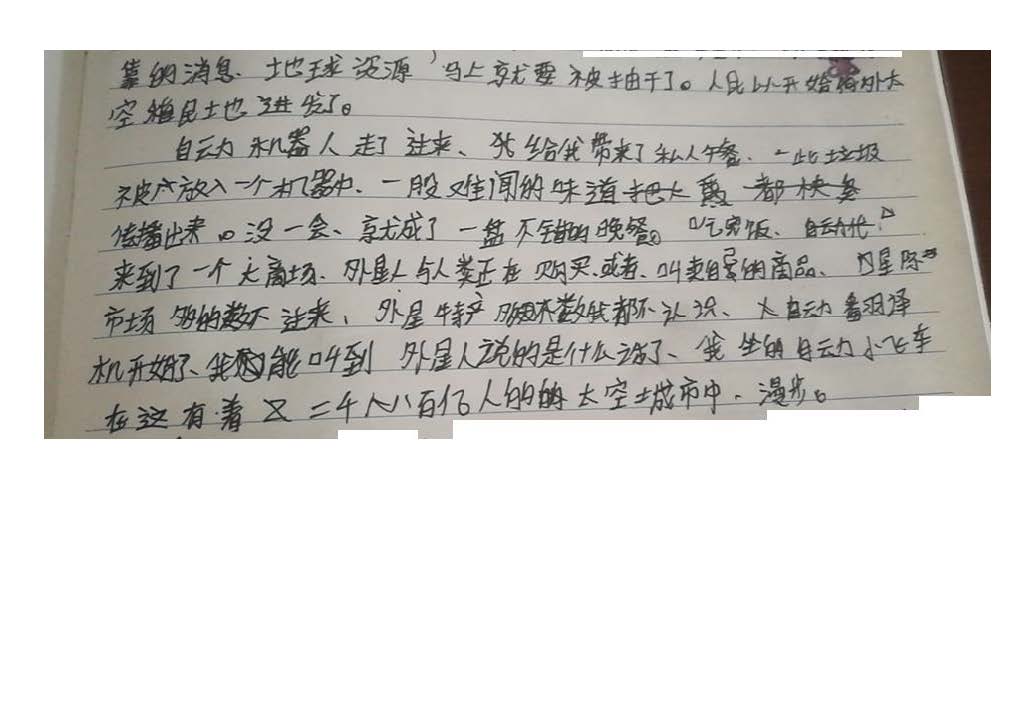 靠的消息.地球资源,马上就要被抽干了。人民以开始向外太
空殖民土也进发了。
自云力机器人走了过来、给我带来了私人午餐.一些垃圾
被放入一个机器中.一股难闻的味道
传播出来。没一会、就成了一盘不错的晚餐。吃完饭、自动
来到了一个大商场.外星人与人类正在购买.或者.叫卖自己的商品、星际
市场的数不过来,外星特产都不认识、自动翻译
机开始了、我能叫到外星人说的是什么话了、我坐的自云力小飞车
在这有着二千八百亿人的太空城市中.漫步。